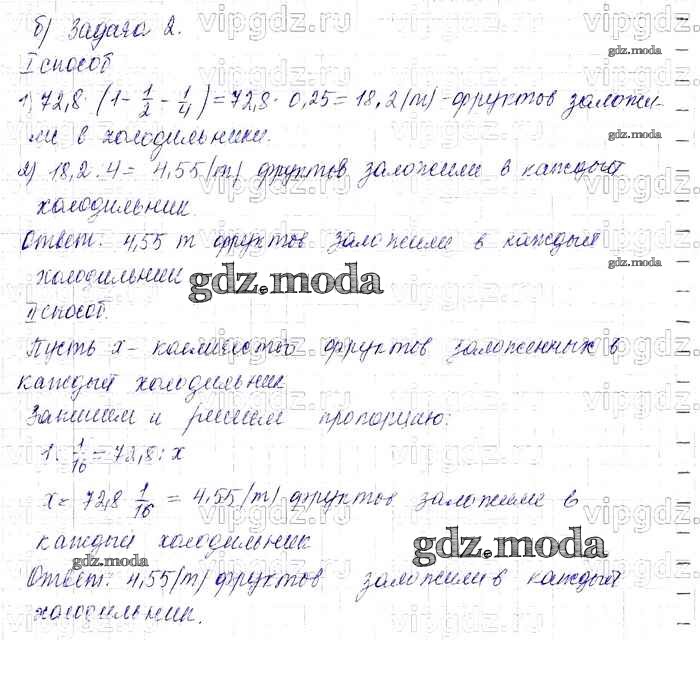 б) Задача 2.
I способ
1) 72,8 · (1 - 1/2 - 1/4) = 72,8 · 0,25 = 18,2 (т) - фруктов заложи-
ли в холодильники.
2) 18,2 : 4 = 4,55 (т) фруктов заложили в каждый
холодильник.
Ответ: 4,55 т фруктов заложили в каждый
холодильник
II способ.
Пусть х - количество фруктов заложенных в
каждый холодильник
Запишем и решаем пропорцию:
1 : 1/16 = 72,8 : х
х = 72,8 · 1/16 = 4,55 (т) - фруктов заложили в
каждый холодильник
Ответ: 4,55 (т) фруктов заложили в каждый
холодильник.
gdz.moda
gdz.moda
gdz.moda
gdz.moda
gdz.moda
gdz.moda
gdz.moda
vipgdz.ru